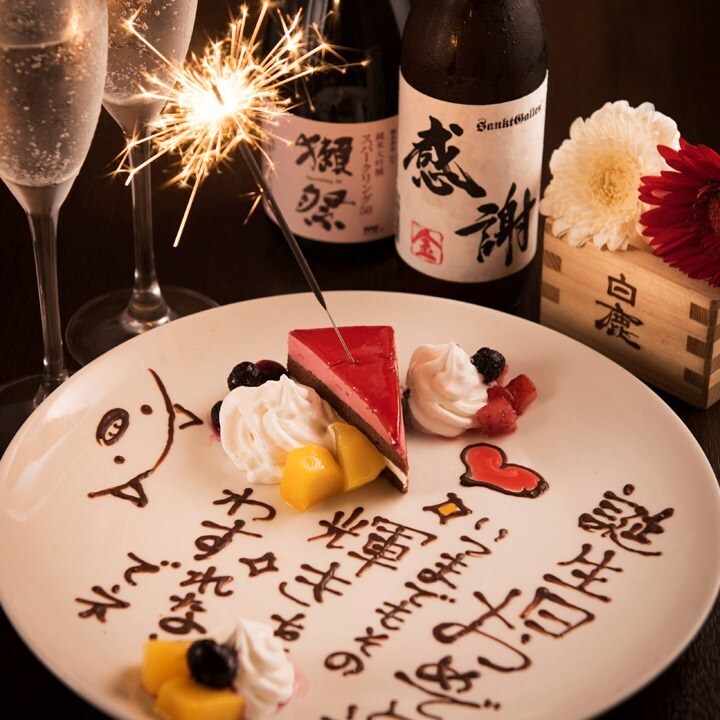 獺祭
純米大吟醸
スパークリング50
SanktGallen
感謝
金
白鹿
誕生日おめで
いつまでもその
輝きを
わすれな
でネ